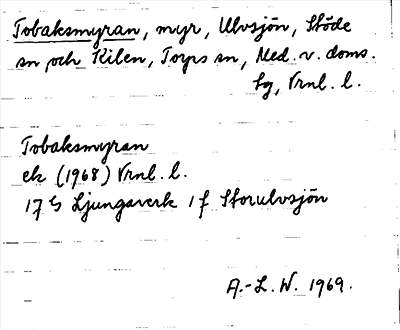 Tobaksmyran, myr, Ulvsjön, Stöde
sn och Kilen, Torps sn, Med. v. doms.
sg, Vrnl. l.
Tobaksmyran
ek (1968) Vrnl. l.
17 G Ljungaverk 1 f Storulvsjön
A.-L. W. 1969.